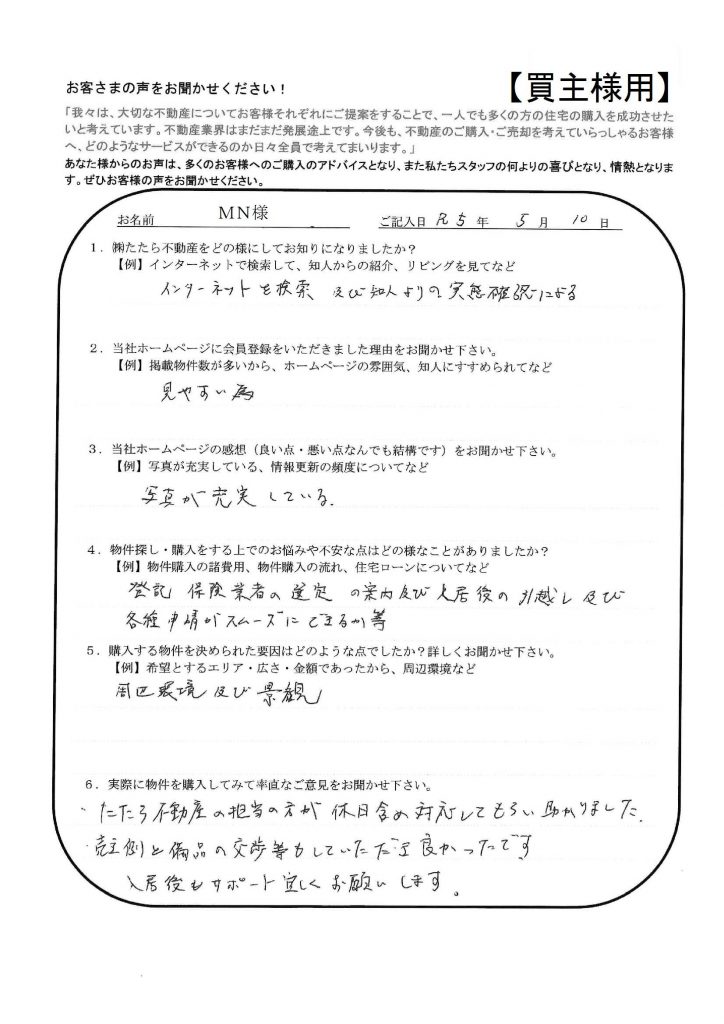 お客さまの声をお聞かせください！
【買主様用】
「我々は、大切な不動産についてお客様それぞれにご提案をすることで、一人でも多くの方の住宅の購入を成功させた
いと考えています。不動産業界はまだまだ発展途上です。今後も、不動産のご購入・ご売却を考えていらっしゃるお客様
へ、どのようなサービスができるのか日々全員で考えてまいります。」
あなた様からのお声は、多くのお客様へのご購入のアドバイスとなり、また私たちスタッフの何よりの喜びとなり、情熱となりま
す。ぜひお客様の声をお聞かせください。
お名前 MN様 ご記入日 R5 年 5 月 10 日
１．㈱たたら不動産をどの様にしてお知りになりましたか？
【例】インターネットで検索して、知人からの紹介、リビングを見てなど
インターネットを検索 及び知人よりの実態確認による
２．当社ホームページに会員登録をいただきました理由をお聞かせ下さい。
【例】掲載物件数が多いから、ホームページの雰囲気、知人にすすめられてなど
見やすい為
３．当社ホームページの感想（良い点・悪い点なんでも結構です）をお聞かせ下さい。
【例】写真が充実している、情報更新の頻度についてなど
写真が充実している.
４．物件探し・購入をする上でのお悩みや不安な点はどの様なことがありましたか？
【例】物件購入の諸費用、物件購入の流れ、住宅ローンについてなど
登記 保険業者の選定 の案内及び入居後の引越し及び
各種申請がスムーズにできるか等
５．購入する物件を決められた要因はどのような点でしたか？詳しくお聞かせ下さい。
【例】希望とするエリア・広さ・金額であったから、周辺環境など
周辺環境及び景観
６．実際に物件を購入してみて率直なご意見をお聞かせ下さい。
・たたら不動産の担当の方が休日含め対応してもらい助かりました.
・売主側と備品の交渉等もしていただき良かったです
入居後もサポート宜しくお願いします。